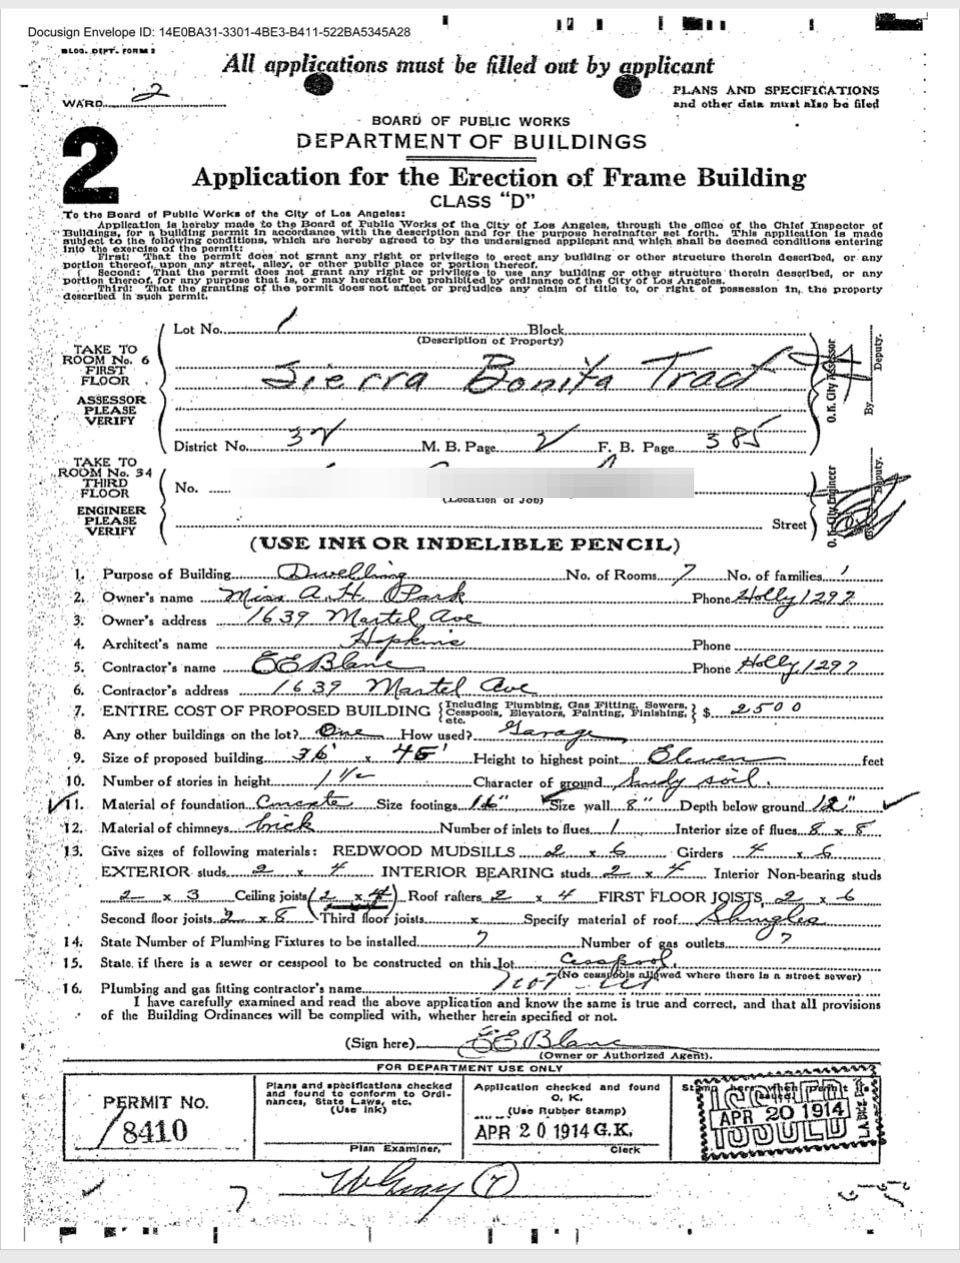 Docusign Envelope ID: 14E0BA31-3301-4BE3-B411-522BA5345A28
BLDG. DEPT. FORM 2
All applications must be filled out by applicant
WARD 2
PLANS AND SPECIFICATIONS
and other data must also be filed
2
BOARD OF PUBLIC WORKS
DEPARTMENT OF BUILDINGS
Application for the Erection of Frame Building
CLASS "D"
To the Board of Public Works of the City of Los Angeles:
Application is hereby made to the Board of Public Works of the City of Los Angeles, through the office of the Chief Inspector of
Buildings, for a building permit in accordance with the description and for the purpose hereinafter set forth. This application is made
subject to the following conditions, which are hereby agreed to by the undersigned applicant and which shall be deemed conditions entering
into the exercise of the permit:
First: That the permit does not grant any right or privilege to erect any building or other structure therein described, or any
portion thereof, upon any street, alley, or other public place or portion thereof.
Second: That the permit does not grant any right or privilege to use any building or other structure therein described, or any
portion thereof, for any purpose that is, or may hereafter be prohibited by ordinance of the City of Los Angeles.
Third: That the granting of the permit does not affect or prejudice any claim of title to, or right of possession in, the property
described in such permit.
TAKE TO
ROOM No. 6
FIRST
FLOOR
ASSESSOR
PLEASE
VERIFY
Lot No. 1 Block
(Description of Property)
Sierra Bonita Tract
District No. 32 M. B. Page 2 F. B. Page 385
O. K. City Assessor
By Deputy.
TAKE TO
ROOM No. 34
THIRD
FLOOR
ENGINEER
PLEASE
VERIFY
No.
(Location of Job)
Street
O. K. City Engineer
By Deputy.
(USE INK OR INDELIBLE PENCIL)
1. Purpose of Building Dwelling No. of Rooms 7 No. of families 1
2. Owner's name Miss A. H. Park Phone Holly 1292
3. Owner's address 1639 Martel Ave
4. Architect's name Hopkins Phone
5. Contractor's name E E Blanc Phone Holly 1292
6. Contractor's address 1639 Martel Ave
7. ENTIRE COST OF PROPOSED BUILDING {Including Plumbing, Gas Fitting, Sewers, Cesspools, Elevators, Painting, Finishing, etc.} $ 2500
8. Any other buildings on the lot? One How used? Garage
9. Size of proposed building 36' x 45' Height to highest point Eleven feet
10. Number of stories in height 1 1/2 Character of ground Sandy soil.
11. Material of foundation Concrete Size footings 16" Size wall 8" Depth below ground 12"
12. Material of chimneys brick Number of inlets to flues 1 Interior size of flues 8 x 8
13. Give sizes of following materials: REDWOOD MUDSILLS 2 x 6 Girders 4 x 6
EXTERIOR studs 2 x 4 INTERIOR BEARING studs 2 x 4 Interior Non-bearing studs
2 x 3 Ceiling joists 2 x 4 Roof rafters 2 x 4 FIRST FLOOR JOISTS 2 x 6
Second floor joists 2 x 8 Third floor joists x Specify material of roof Shingles
14. State Number of Plumbing Fixtures to be installed 7 Number of gas outlets 7
15. State if there is a sewer or cesspool to be constructed on this lot Cesspool.
(No cesspools allowed where there is a street sewer)
16. Plumbing and gas fitting contractor's name Not Let
I have carefully examined and read the above application and know the same is true and correct, and that all provisions
of the Building Ordinances will be complied with, whether herein specified or not.
(Sign here) E E Blanc
(Owner or Authorized Agent).
FOR DEPARTMENT USE ONLY
PERMIT NO.
8410
Plans and specifications checked
and found to conform to Ordi-
nances, State Laws, etc.
(Use Ink)
Plan Examiner,
Application checked and found
O. K.
(Use Rubber Stamp)
APR 20 1914 G.K.
Clerk
Stamp here when permit is issued
ISSUED
APR 20 1914
7